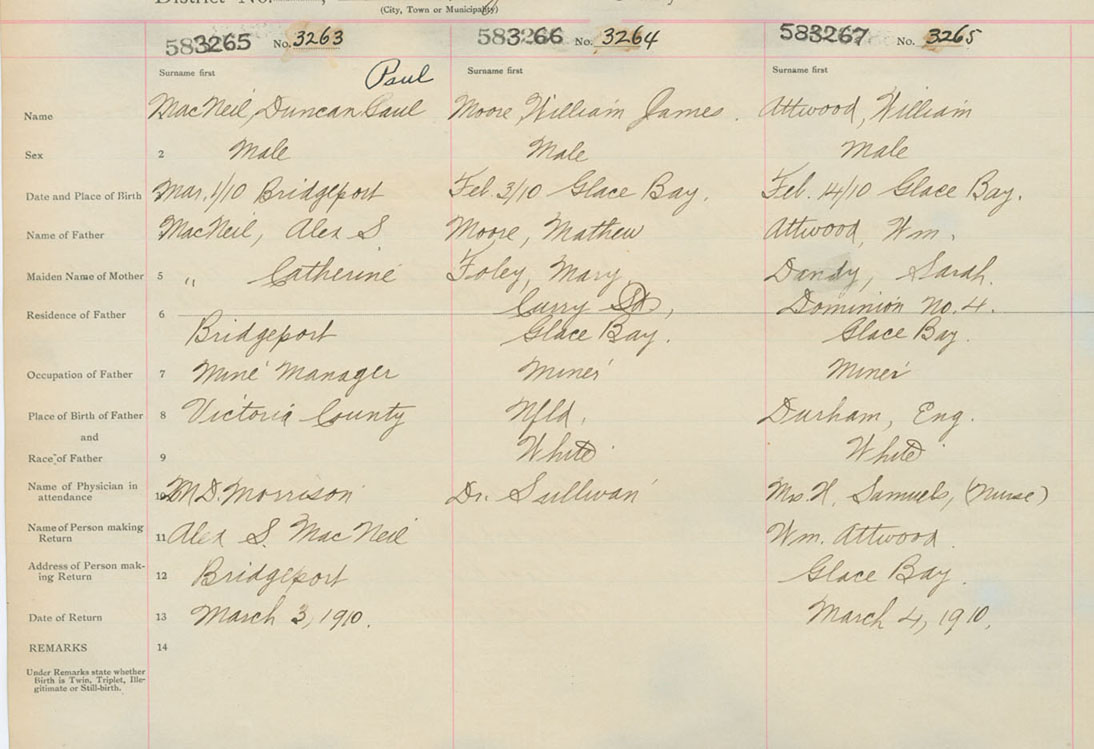 District No.
(City, Town or Municipality)
583265 No. 3263 583266 No. 3264 583267 No. 3265
Surname first Paul Surname first Surname first
Name MacNeil, Duncan Paul Moore, William James. Attwood, William
Sex 2 Male Male Male
Date and Place of Birth Mar. 1/10 Bridgeport Feb. 3/10 Glace Bay. Feb. 14/10 Glace Bay.
Name of Father MacNeil, Alex S Moore, Mathew Attwood, Wm.
Maiden Name of Mother 5 " Catherine Foley, Mary Dandy, Sarah.
Curry St, Dominion No. 4.
Residence of Father 6 Bridgeport Glace Bay. Glace Bay.
Occupation of Father 7 Mine Manager Miner Miner
Place of Birth of Father 8 Victoria County Nfld. Durham, Eng.
and
Race of Father 9 White White
Name of Physician in
attendance 10 M.D. Morrison Dr. Sullivan Mrs. H. Samuels, (Nurse)
Name of Person making
Return 11 Alex S. MacNeil Wm. Attwood.
Address of Person mak-
ing Return 12 Bridgeport Glace Bay.
Date of Return 13 March 3, 1910. March 4, 1910.
REMARKS 14
Under Remarks state whether
Birth is Twin, Triplet, Ille-
gitimate or Still-birth.